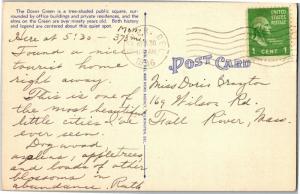 The Dover Green is a tree-shaded public square, surrounded by office buildings and private residences, and the elms on the Green are over ninety years old. Both history and legend are centered about this quiet spot.
Mon.
373 mi.
Here at 5:30 —
Found a nice
tourist home
right away.
This is one of
the most beautiful
little cities I've
ever seen.
Dogwood,
azaleas, appletrees
and loads of other
blossoms in
abundance. Ruth
POST CARD
1 CENT 1
Miss Doris Brayton
169 Wilson Rd.
Fall River, Mass.